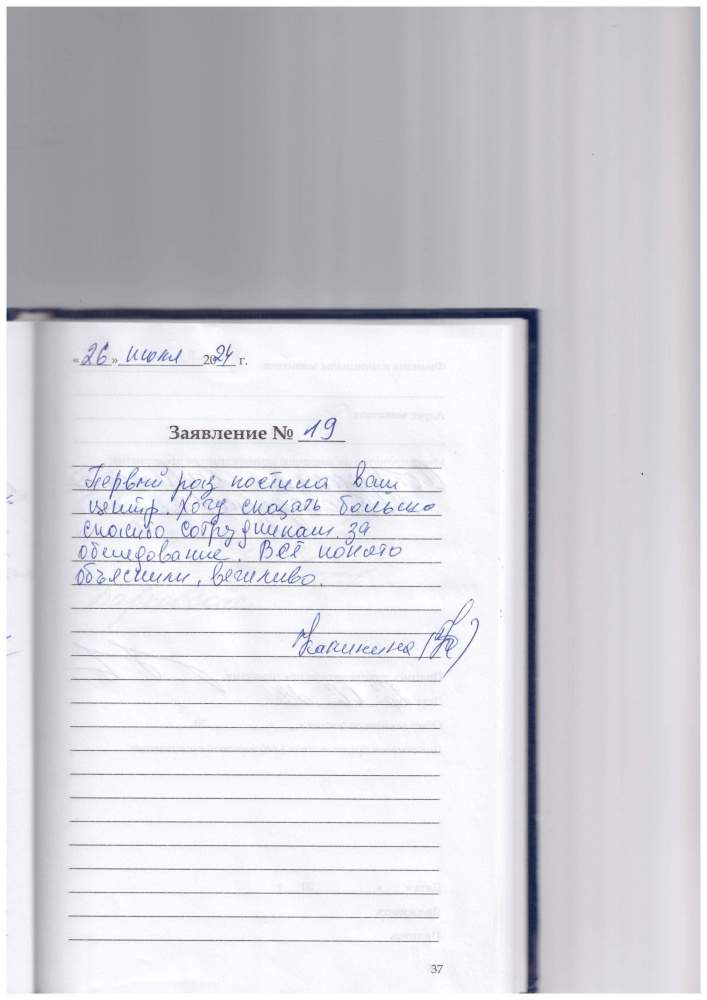 «26» июля 2024 г.
Заявление № 19
Первый раз постила ваш
центр. Хочу сказать большо
спасибо сотрудникам за
обследование. Всё понято
объяснили, вежливо.
Калинина
37